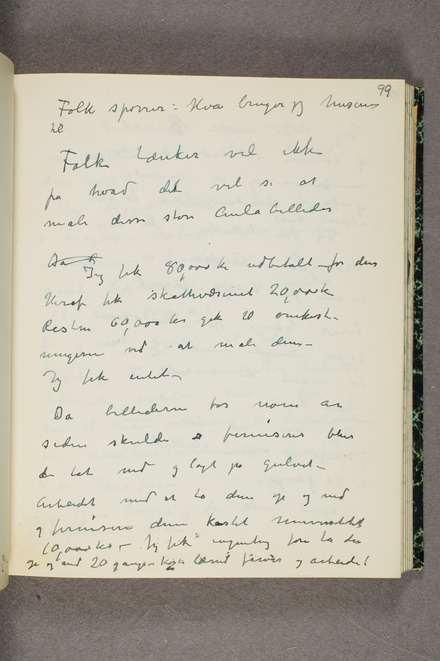 99
Folk spørrer: Hva bruger jeg husene
til
Folk tænker vel ikke
på hvad det vil si at
male disse store Aulabilleder
Jeg fik 80,000 kr udbetalt for dem
Heraf fik skattevæsenet 20,000 kr
Resten 60,000 kr gik til omkost-
ningerne ved at male dem –
Jeg fik intet
Da billederne for noen år
siden skulde fernisseres blev
de tat ned og lagt på gulvet –
Arbeidet med at ta dem op og ned
og fernissere dem kostet universitetet
10,000 kr – Jeg fik ingenting for at ta dem
op og ned 20 ganger og arbeidet